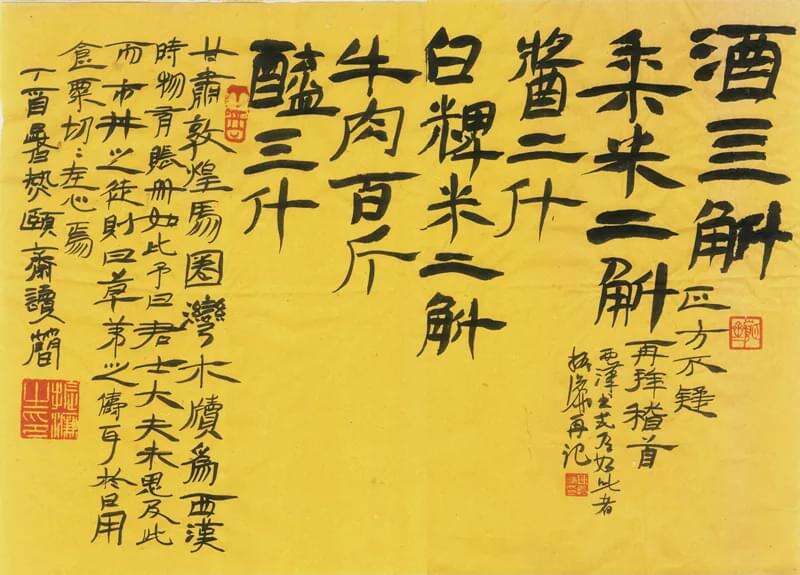 酒三斛
正方不疑
黍米二斛
再拜稽首
西漢書式有如此者
振濂再记
醬二斗
白粺米二斛
牛肉百斤
醯三斗
甘肅敦煌馬圈灣木牘爲西漢
時物有賬册如此予曰君士大夫未思及此
而市井之徒則曰草之儔耳於日用
食粟切〻在心焉
丁酉暑熱頤齋讀簡